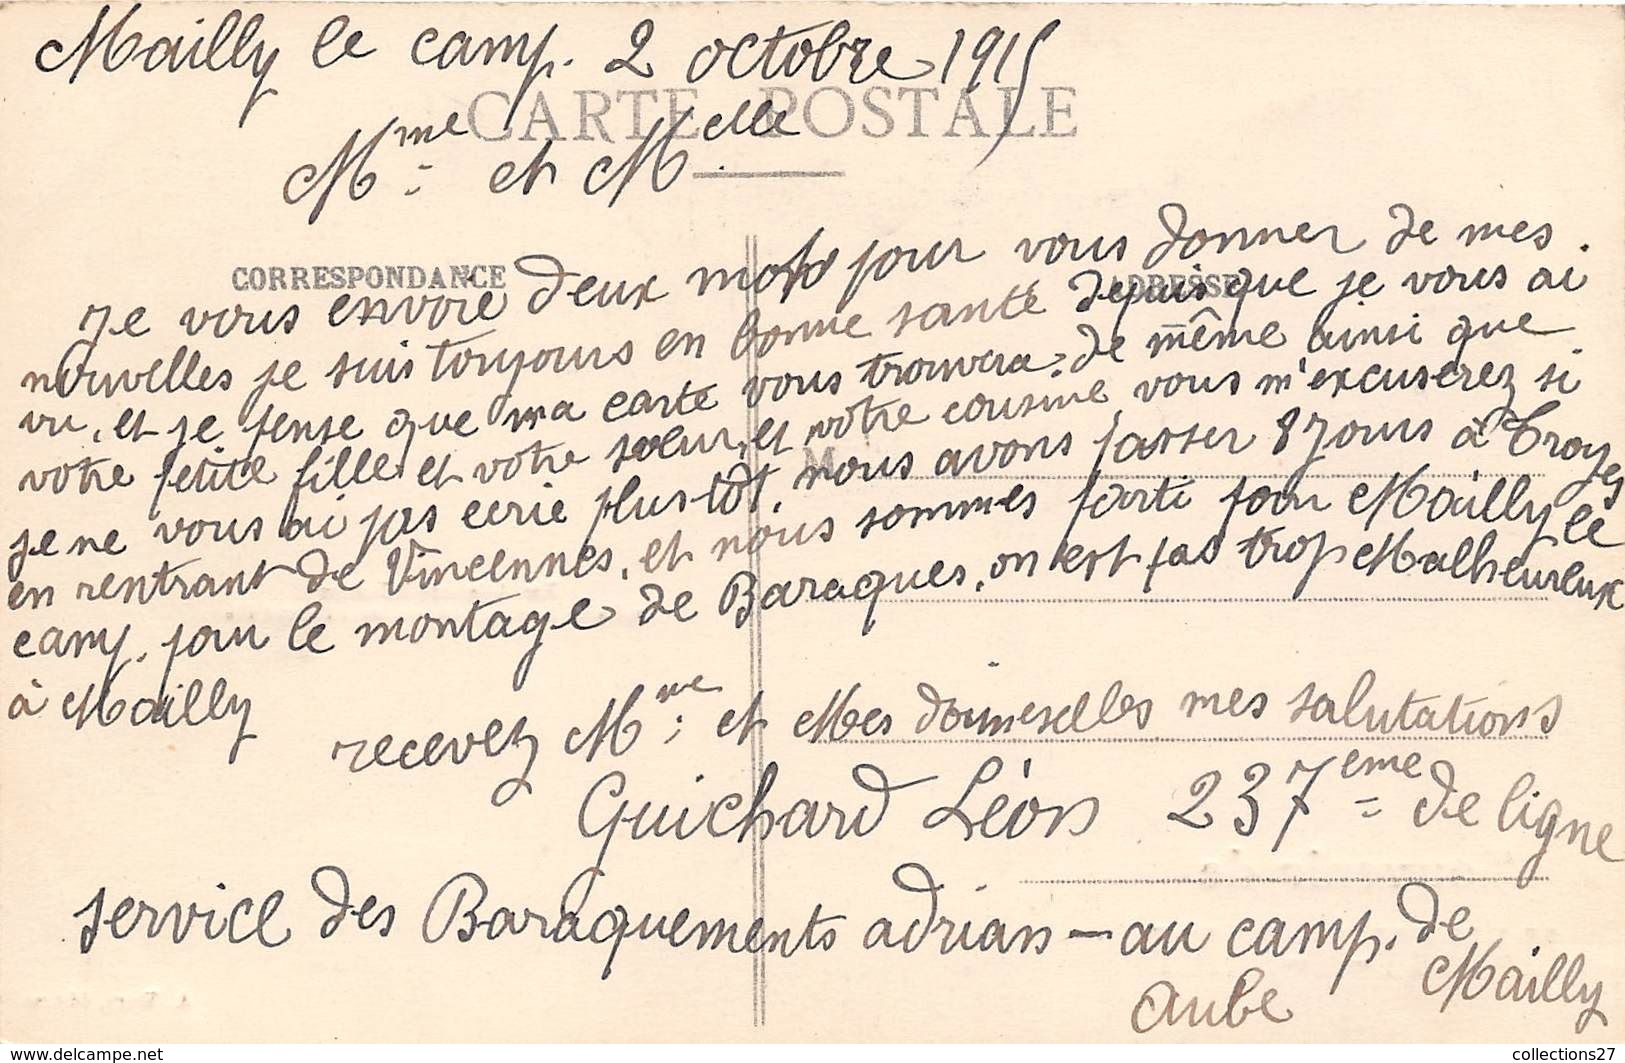 Mailly le camp. 2 octobre 1915
CARTE POSTALE
Mme et Melle
CORRESPONDANCE
ADRESSE
Je vous envoie deux mots pour vous donner de mes
nouvelles je suis toujours en bonne santé depuis que je vous ai
vu, et je pense que ma carte vous trouvera de même ainsi que
votre petite fille et votre sœur, et votre cousine, vous m'excuserez si
je ne vous ai pas ecrie plus tôt, nous avons passer 8 jours à Troyes
en rentrant de Vincennes, et nous sommes parti pour Mailly le
camp. pour le montage de Baraques, on est pas trop Malheureux
à Mailly
M
recevez Mme et Mes doimeselles mes salutations
Guichard Léon 237eme de ligne
service des Baraquements adrian - au camp. de
Mailly
Aube
collections27
www.delcampe.net